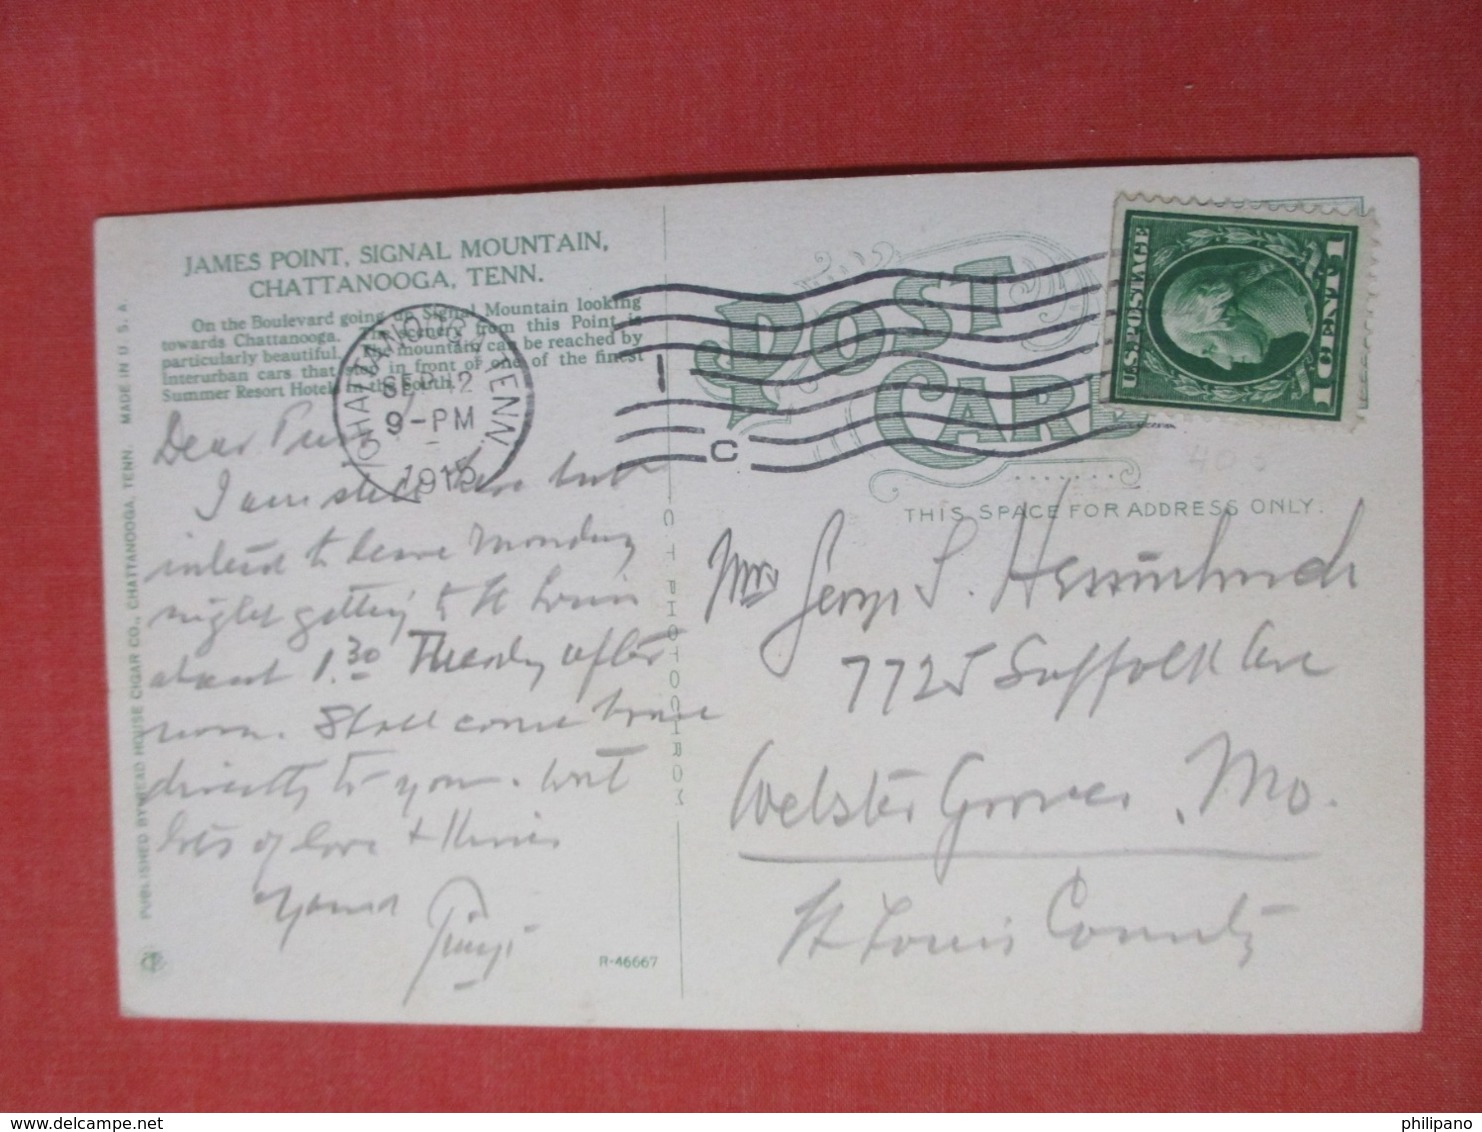 JAMES POINT, SIGNAL MOUNTAIN,
CHATTANOOGA, TENN.
On the Boulevard going up Signal Mountain looking
towards Chattanooga. The scenery from this Point is
particularly beautiful. mountain can be reached by
Interurban cars that in front of one of the finest
Summer Resort Hotels in the South.
Dear
I am still here but
intend to leave Monday
night getting to St Louis
about 1.30 Tuesday after
noon. Shall come home
directly to you. Wit
lots of love & kisses
Yours
R-46667
PUBLISHED BY READ HOUSE CIGAR CO., CHATTANOOGA, TENN. MADE IN U.S.A.
C.T. PHOTOCHROM
CHATTANOOGA, TENN.
SEP 12
9-PM
1915
1
C
POST
CARD
THIS SPACE FOR ADDRESS ONLY.
U.S. POSTAGE
1 CENT 1
Mrs George S.
7725 Suffolk Ave
Webster Groves, Mo.
St Louis County
philipano
delcampe.net